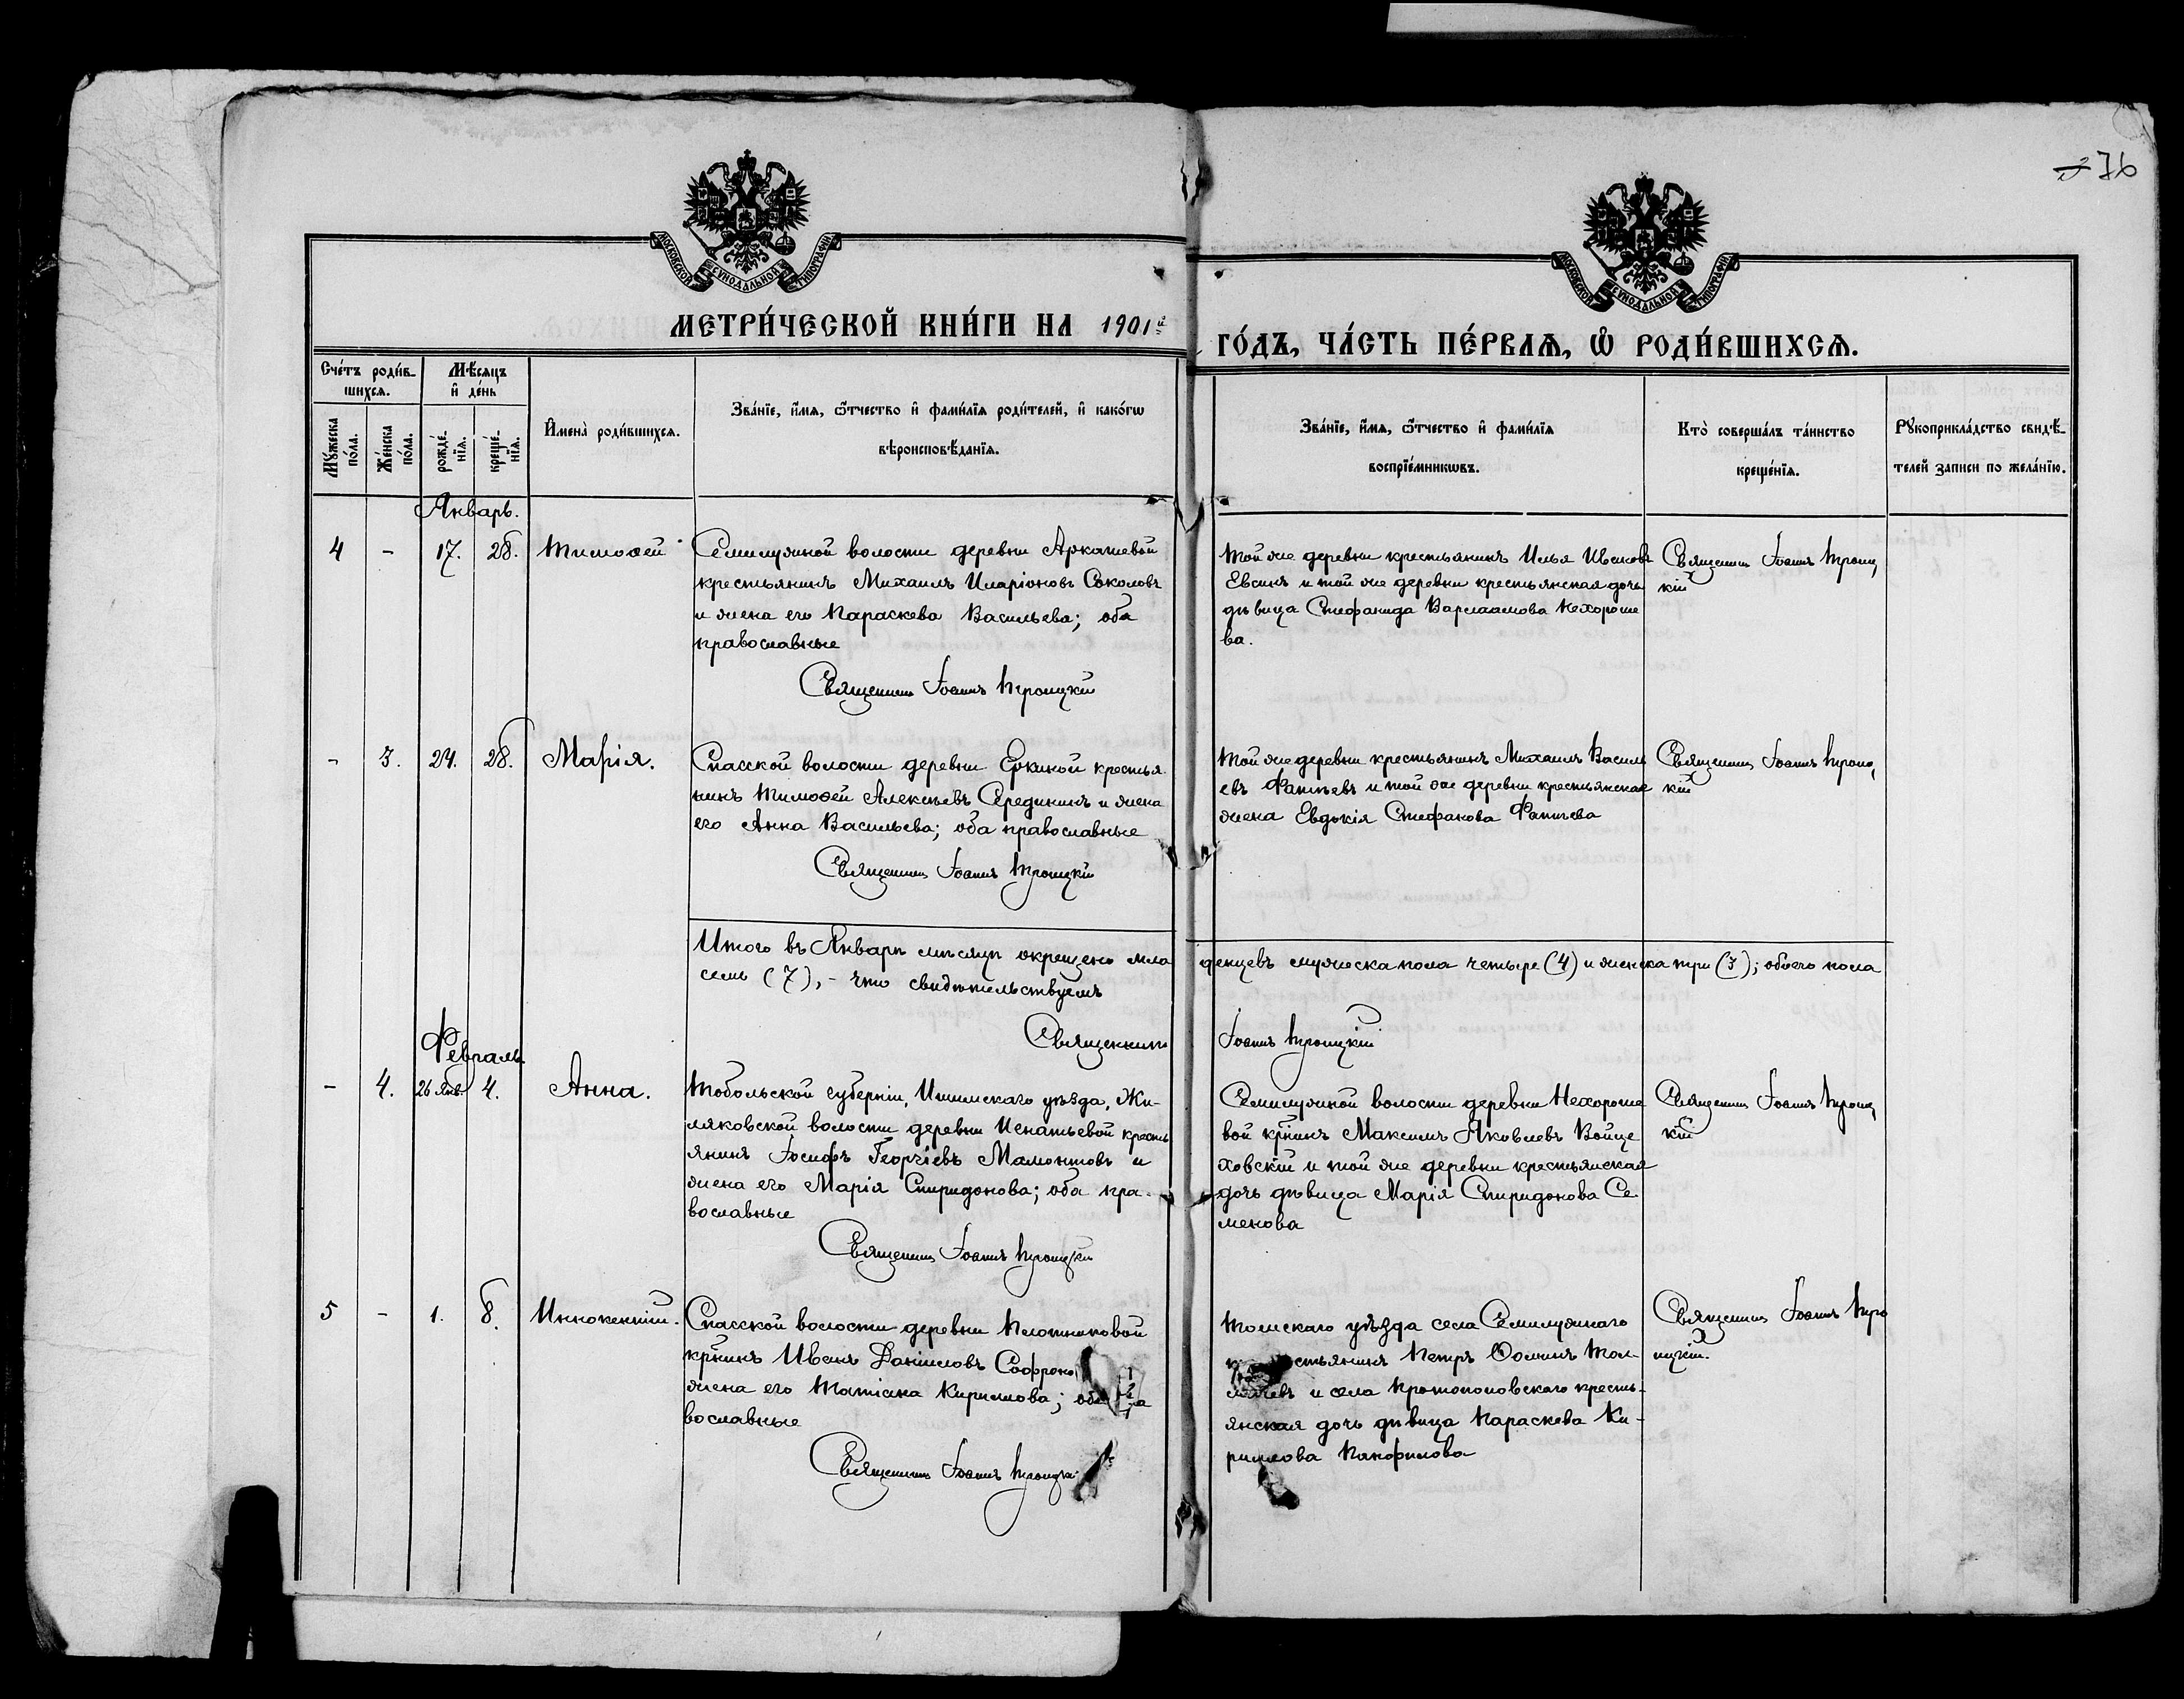 76
МОСКОВСКОЙ СУНОДАЛЬНОЙ ТИПОГРАФІИ
МОСКОВСКОЙ СУНОДАЛЬНОЙ ТИПОГРАФІИ
МЕТРИ́ЧЕСКОЙ КНИ́ГИ НА 1901й
ГО́ДЪ, ЧА́СТЬ ПЕ́РВАѦ, Ѡ РОДИ́ВШИХСѦ.
Сче́тъ роди́в-
шихсѧ.
Мѣ́сѧцъ
и҆ де́нь
Мꙋ́жеска
по́ла.
Же́нска
по́ла.
рожде́-
нїѧ.
креще́-
нїѧ.
И҆мена̀ роди́вшихсѧ.
Зва́нїе, и҆́мѧ, ѻ҆́тчество и҆ фами́лїѧ роди́телей, и҆ како́гѡ
вѣроисповѣ́данїѧ.
Зва́нїе, и҆́мѧ, ѻ҆́тчество и҆ фами́лїѧ
воспрїе́мникѡвъ.
Кто̀ соверша́лъ та́инство
креще́нїѧ.
Рꙋкоприкла́дство свидѣ́-
телей записи по жела́нїю.
Январь.
4 - 17. 28. Тимоѳей
Семилужной волости деревни Аркашевой
крестьянинъ Михаилъ Иларіоновъ Соколовъ
и жена его Параскева Васильева; оба
православные
Священникъ Іоаннъ Троицкій
Той же деревни крестьянинъ Илья Ивановъ
Евсинъ и той же деревни крестьянская дочь
дѣвица Стефанида Варлаамова Нехороше
ва.
Священникъ Іоаннъ Троиц
кій
- 3. 24. 28. Марія.
Спасской волости деревни Еркиной крестья
нинъ Тимоѳей Алексѣевъ Серединнъ и жена
его Анна Васильева; оба православные
Священникъ Іоаннъ Троицкій
Той же деревни крестьянинъ Михаилъ Василь
евъ Фатѣевъ и той же деревни крестьянская
жена Евдокія Стефанова Фатѣева
Священникъ Іоаннъ Троиц
кій
Итого въ Январѣ мѣсяцѣ окрещено мла
денцевъ мужеска пола четыре (4) и женска три (3); обоего пола
семь (7), - что свидѣтельствуемъ
Священникъ Іоаннъ Троицкій
Февраль.
- 4. 26 Янв. 4. Анна.
Тобольской губерніи, Ишимскаго уѣзда, Жи-
ляковской волости деревни Игнатьевой кресть
янинъ Іосифъ Георгіевъ Мамонтовъ и
жена его Марія Спиридонова; оба пра-
вославные
Священникъ Іоаннъ Троицкій
Семилужной волости деревни Нехороше
вой кр̃нинъ Максимъ Яковлевъ Войце
ховскій и той же деревни крестьянская
дочь дѣвица Марія Спиридонова Се
менова
Священникъ Іоаннъ Троиц
кій
5 - 1. 8. Иннокентій.
Спасской волости деревни Плотниковой
кр̃нинъ Иванъ Даніиловъ Софроно
жена его Татіана Кириллова; оба
вославные
Священникъ Іоаннъ Троицкі
Томскаго уѣзда села Семилужнаго
стьянинъ Петръ Ѳоминъ Тол-
мачевъ и села Протопоповскаго кресть-
янская дочь дѣвица Параскева Ки-
риллова Панфилова
Священникъ Іоаннъ Тро
ицкій.